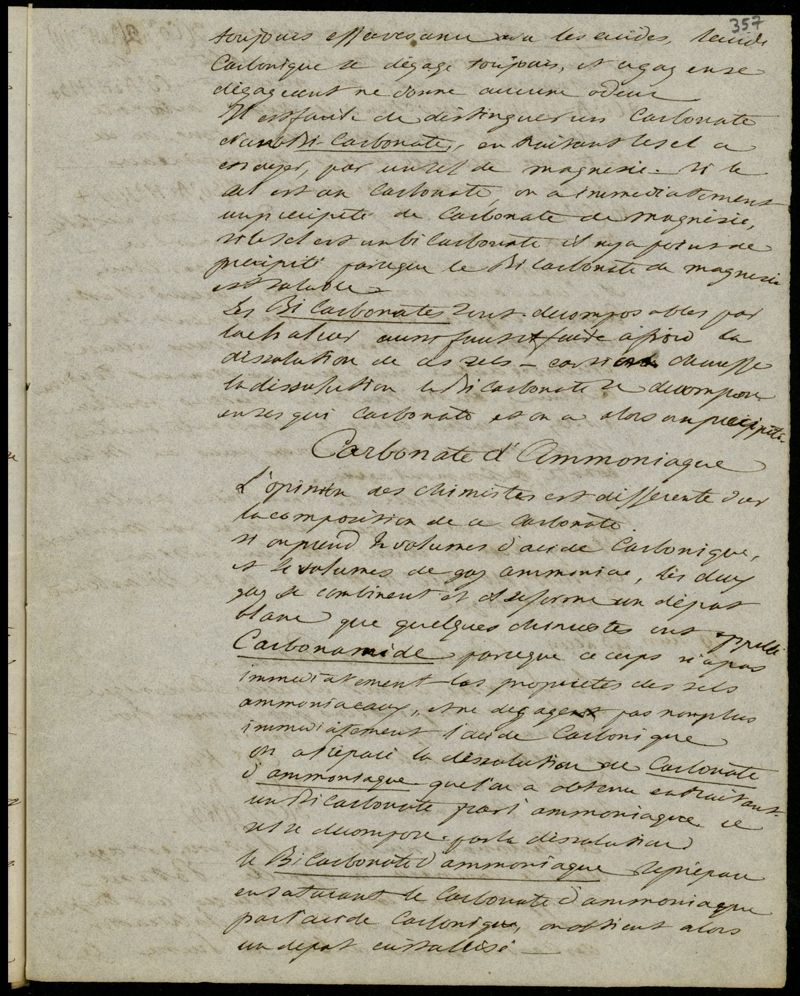 357
toujours effervescence avec les acides, l'acide
Carbonique se dégage toujours, et ce gaz en se
dégageant ne donne aucune odeur
Il est facile de distinguer un Carbonate
d'un Bi-Carbonate, en traitant le sel a
essayer, par un sel de magnesie. Si le
sel est un Carbonate, on a immediatement
un précipité de Carbonate de magnésie,
si le sel est un bi Carbonate il n'y a point de
precipité parceque le Bi Carbonate de magnesie
est soluble
Les Bi Carbonates sont decomposables par
la chaleur aussi faut il faire à froid la
dissolution de ces sels - car si on chauffe
la dissolution le Bi Carbonate se decompose
en sesqui Carbonate et on a alors un précipité
Carbonate d'Ammoniaque
L'opinion des chimistes est differente sur
la composition de ce Carbonate
si on prend 2 volumes d'acide Carbonique,
et volumes de gaz ammoniac, les deux
gaz se combinent et il se forme un dépôt
blanc que quelques chimistes ont appelé
Carbonamide parceque ce corps n'a pas
immediatement les proprietes des sels
ammoniacaux, et ne degagent pas non plus
immediatement l'acide Carbonique
on a la dissolution de Carbonate
d'ammoniaque que l'on a obtenu en traitant
un Bi Carbonate par l'ammoniaque ce
sel se decompose par la dissolution
le Bi Carbonate d'ammoniaque se prépare
en saturant le Carbonate d'ammoniaque
par l'acide Carbonique, on obtient alors
un depot cristallisé